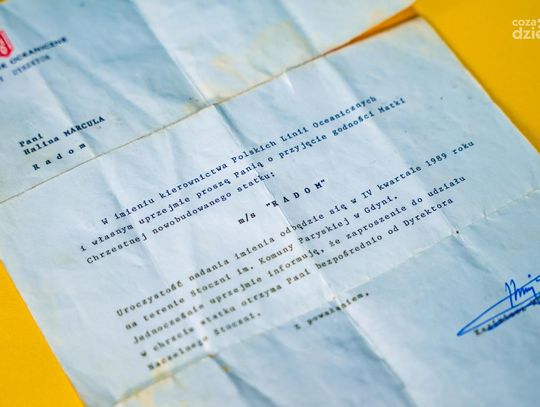 coza
dzień
OCEANICZNE
DYREKTOR
Pani
Halina MARCULA
R a d o m
W imieniu kierownictwa Polskich Linii Oceanicznych
i własnym uprzejmie proszę Panią o przyjęcie godności Matki
Chrzestnej nowobudowanego statku:
m/s "RADOM"
Uroczystość nadania imienia odbędzie się w IV kwartale 1989 roku
na terenie Stoczni im. Komuny Paryskiej w Gdyni.
Jednocześnie uprzejmie informuję, że zaproszenie do udziału
w chrzcie statku otrzyma Pani bezpośrednio od Dyrektora
Naczelnego Stoczni.
Z poważaniem,